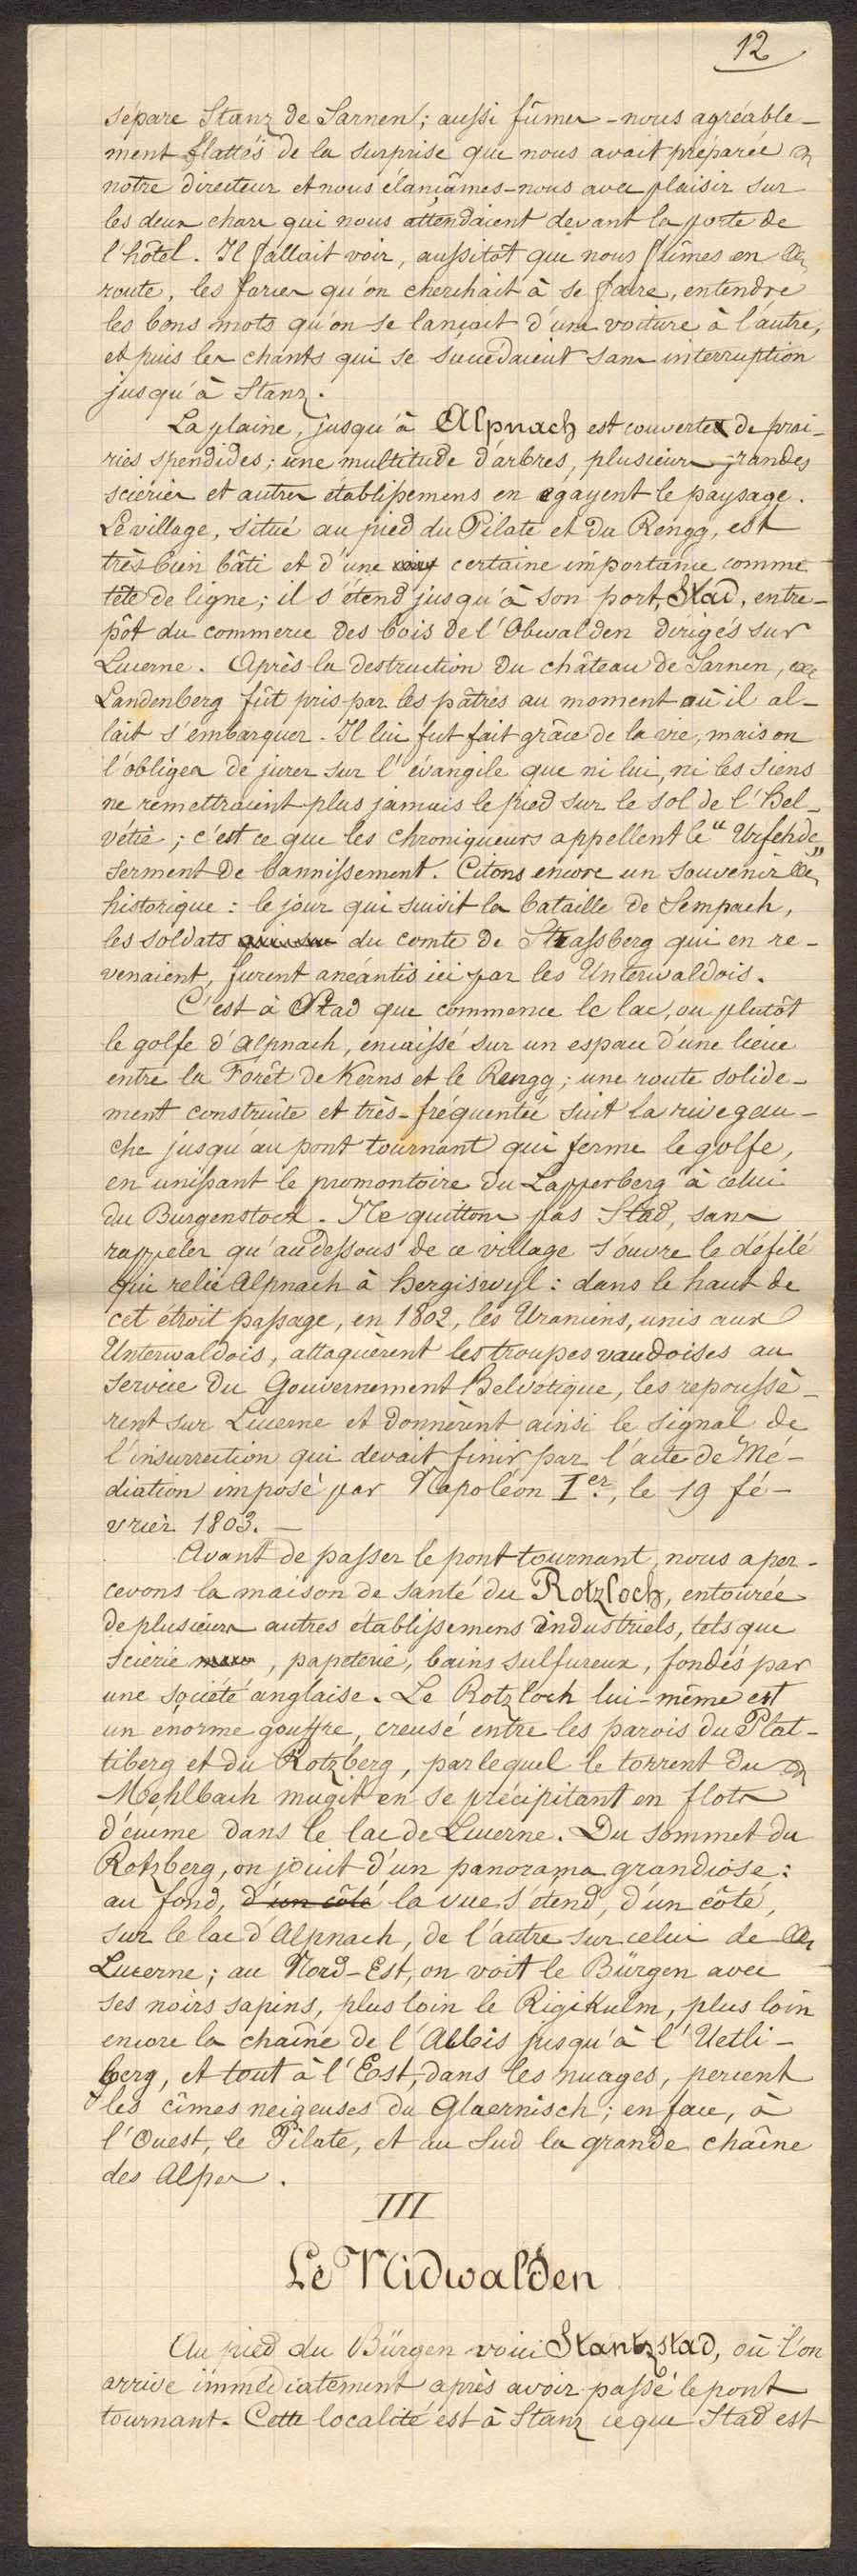 12
sépare Stanz de Sarnen; aussi fûmes-nous agréable-
ment flattés de la surprise que nous avait préparée
notre directeur et nous élançâmes-nous avec plaisir sur
les deux chars qui nous attendaient devant la porte de
l'hôtel. Il fallait voir, aussitôt que nous fûmes en
route, les farces qu'on cherchait à se faire, entendre
les bons mots qu'on se lançait d'une voiture à l'autre,
et puis les chants qui se succédaient sans interruption
jusqu'à Stanz.
La plaine, jusqu'à Alpnach est couverte de prai-
ries spendides; une multitude d'arbres, plusieurs grandes
scieries et autres établissemens en égayent le paysage.
Le village, situé au pied du Pilate et du Rengg, est
très bien bâti et d'une certaine importance comme
tête de ligne; il s'étend jusqu'à son port, Stad, entre-
pôt du commerce des bois de l'Obwalden dirigés sur
Lucerne. Après la destruction du château de Sarnen,
Landenberg fût pris par les pâtres au moment où il al-
lait s'embarquer. Il lui fut fait grâce de la vie, mais on
l'obligea de jurer sur l'évangile que ni lui, ni les siens
ne remettraient plus jamais le pied sur le sol de l'Hel-
vétie; c'est ce que les chroniqueurs appellent le "Urfehde,
serment de bannissement." Citons encore un souvenir
historique: le jour qui suivit la bataille de Sempach,
les soldats du comte de Strassberg qui en re-
venaient, furent anéantis ici par les Unterwaldois.
C'est à Stad que commence le lac, ou plutôt
le golfe d'Alpnach, encaissé sur un espace d'une lieue
entre la Forêt de Kerns et le Rengg; une route solide-
ment construite et très-fréquentée suit la rive gau-
che jusqu'au pont tournant qui ferme le golfe,
en unissant le promontoire du Lapperberg à celui
du Burgenstock. Ne quittons pas Stad, sans
rappeler qu'au dessous de ce village s'ouvre le défilé
qui relie Alpnach à Hergiswyl: dans le haut de
cet étroit passage, en 1802, les Uraniens, unis aux
Unterwaldois, attaquèrent les troupes vaudoises au
service du Gouvernement Helvétique, les repoussè-
rent sur Lucerne et donnèrent ainsi le signal de
l'insurrection qui devait finir par l'acte de Mé-
diation imposé par Napoléon Ier, le 19 fé-
vrier 1803. —
Avant de passer le pont tournant, nous aper-
cevons la maison de santé du Rotzloch, entourée
de plusieurs autres établissemens industriels, tels que
scierie, papeterie, bains sulfureux, fondés par
une société anglaise. Le Rotzloch lui-même est
un énorme gouffre, creusé entre les parois du Plat-
tiberg et du Rotzberg, par lequel le torrent du
Mehlbach mugit en se précipitant en flots
d'écume dans le lac de Lucerne. Du sommet du
Rotzberg, on jouit d'un panorama grandiose:
au fond, d'un côté la vue s'étend, d'un côté,
sur le lac d'Alpnach, de l'autre sur celui de
Lucerne; au Nord-Est, on voit le Bürgen avec
ses noirs sapins, plus loin le Rigikulm, plus loin
encore la chaîne de l'Albis jusqu'à l'Uetli-
berg, et tout à l'Est, dans les nuages, percent
les cîmes neigeuses du Glaernisch; en face, à
l'Ouest, le Pilate, et au Sud la grande chaîne
des Alpes.
III
Le Nidwalden
Au pied du Bürgen voici Stantzstad, où l'on
arrive immédiatement après avoir passé le pont
tournant. Cette localité est à Stanz ce que Stad est